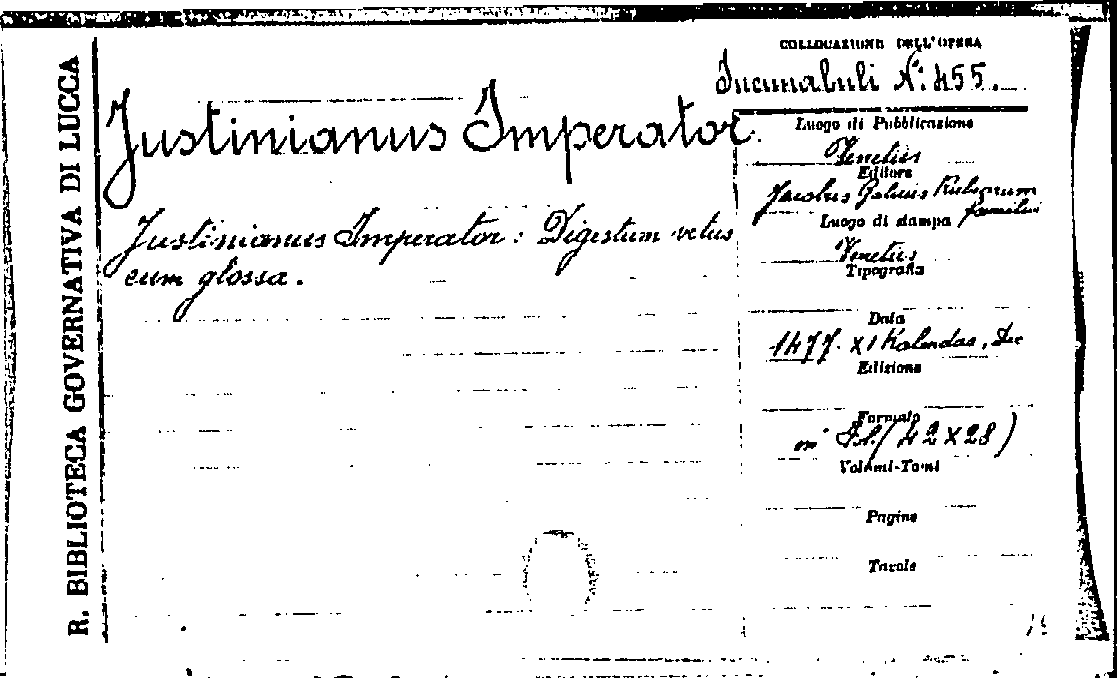 R. BIBLIOTECA GOVERNATIVA DI LUCCA
COLLOCAZIONE DELL'OPERA
Incunabuli N.º 455.
Justinianus Imperator.
Justinianus Imperator: Digestum vetus
cum glossa.
Luogo di Pubblicazione
Venetiis
Editore
Jacobus Rubeorum
familia
Luogo di stampa
Venetiis
Tipografia
Data
1477. XI Kalendas, Dec
Edizione
Formato
in (42 X 28)
Volumi-Tomi
Pagine
Tavole